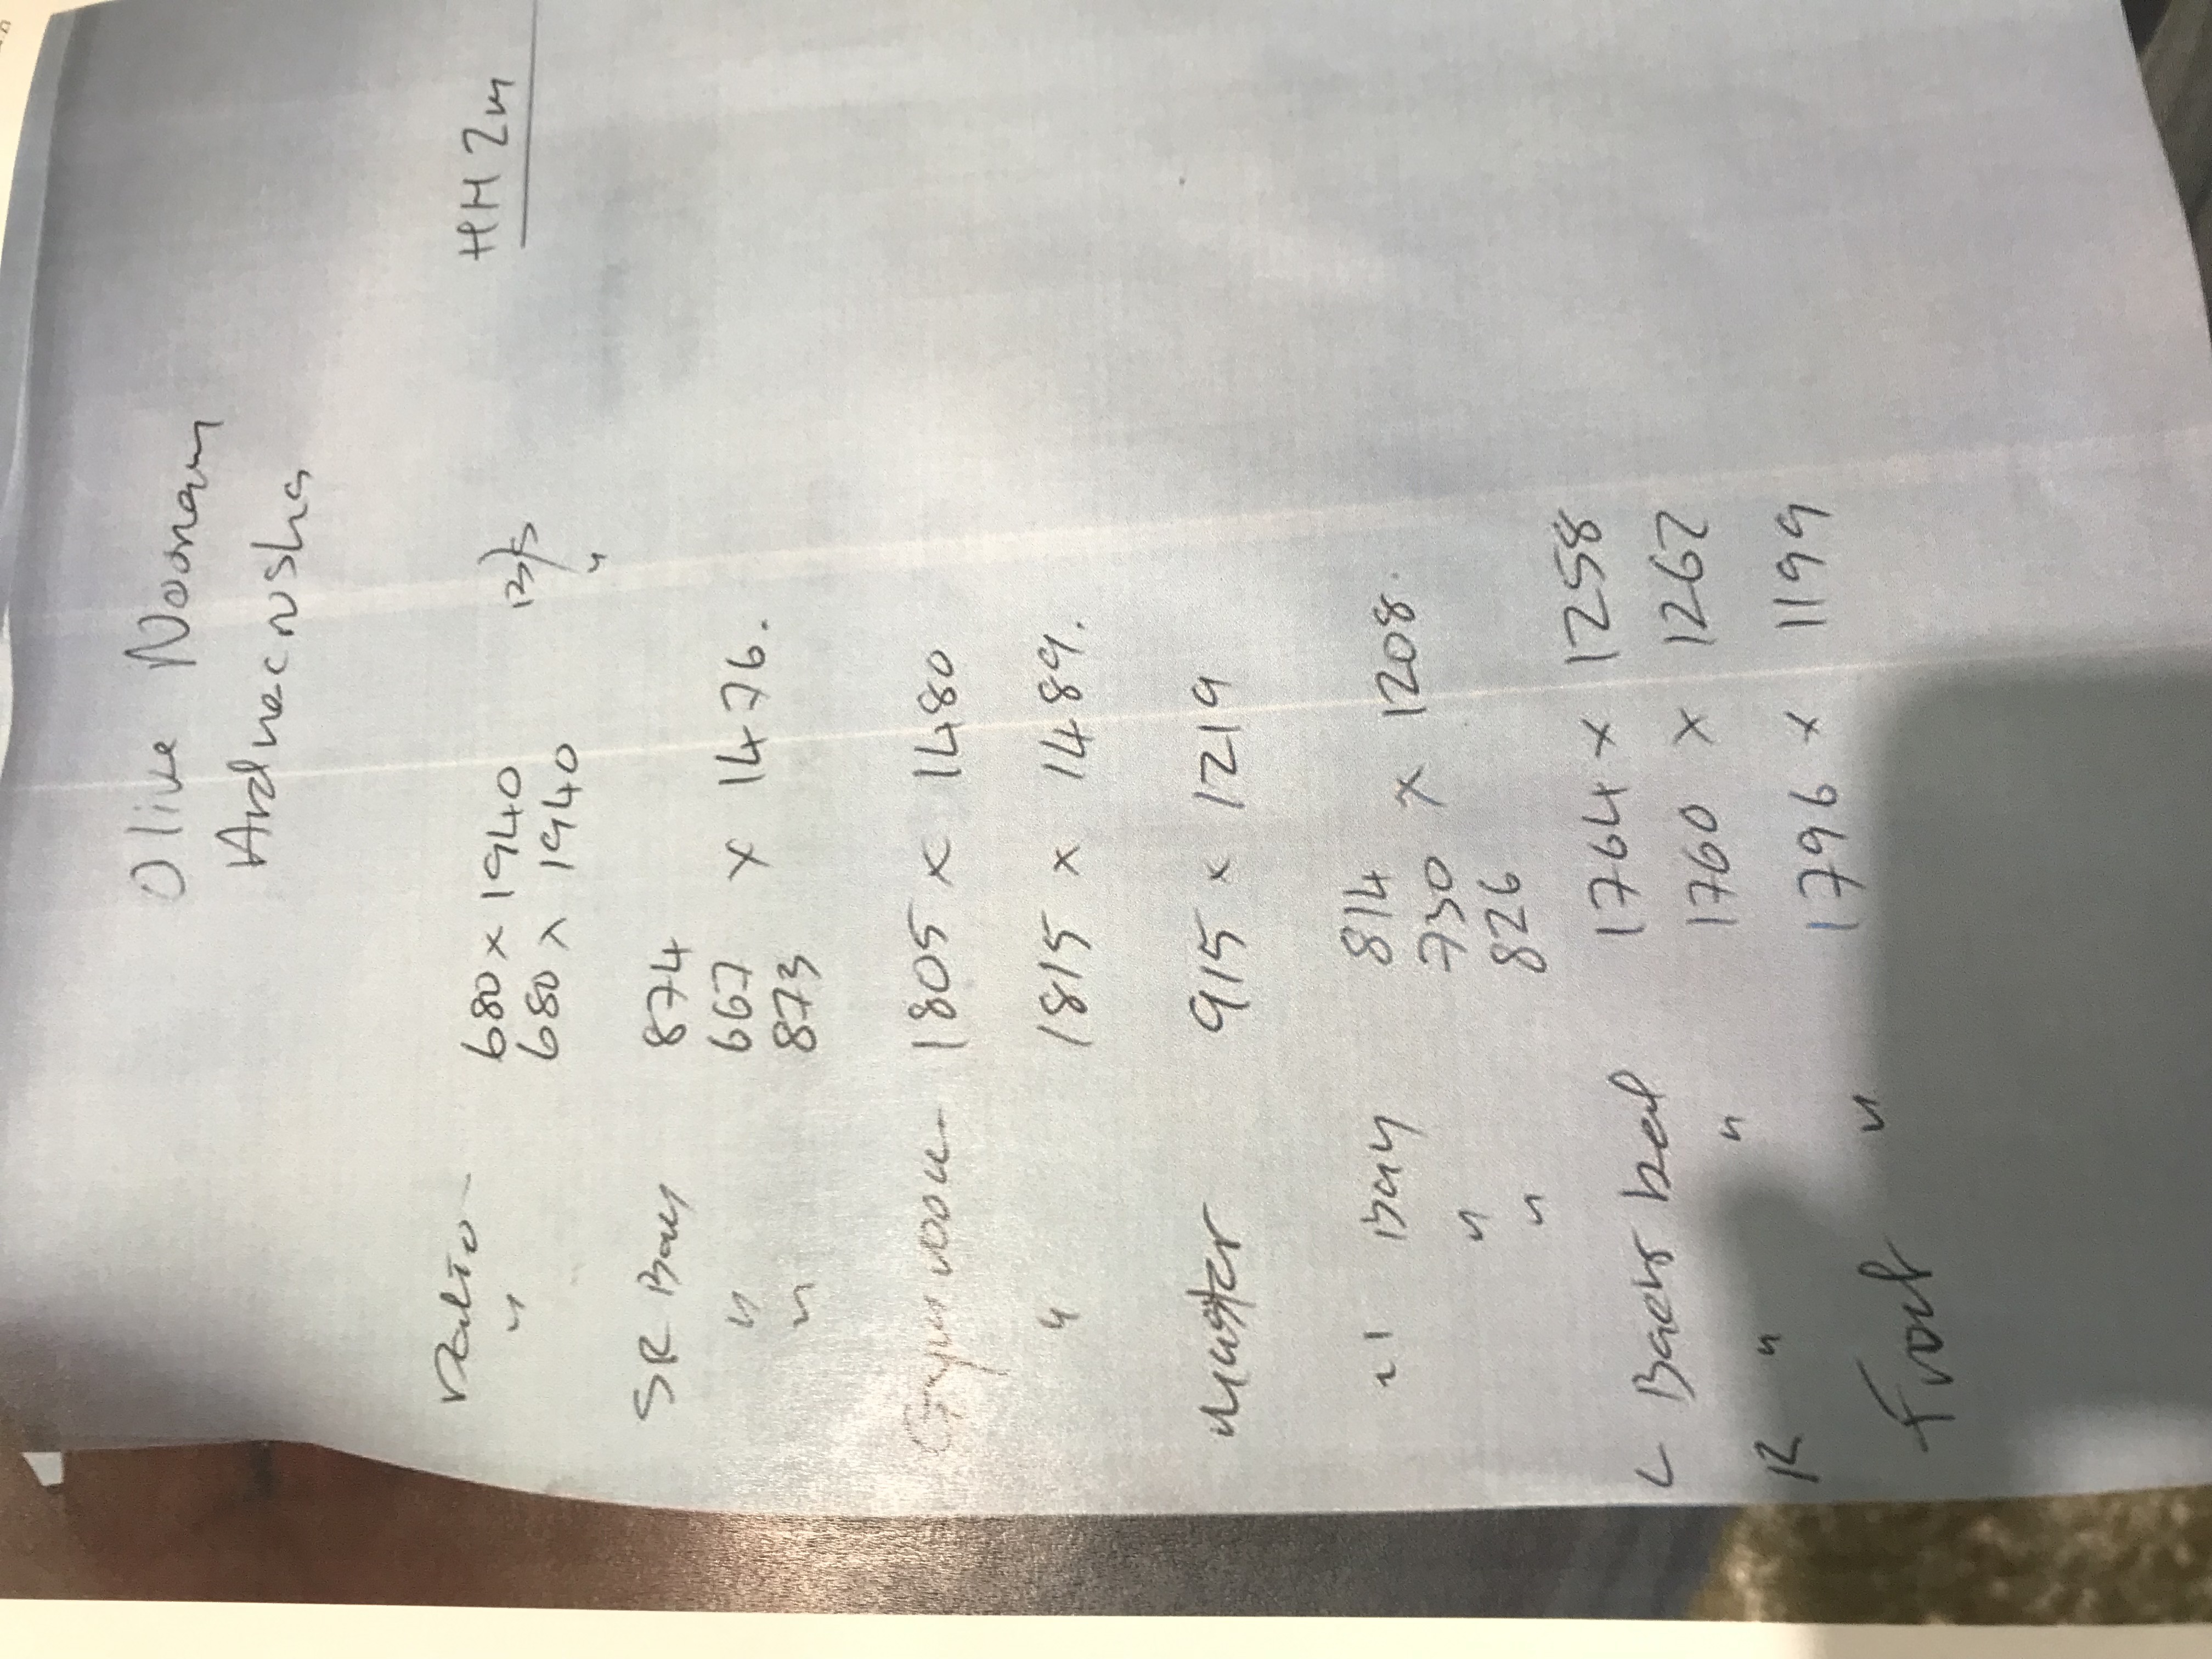 Olive Noonan
Ardnacrusha
HH 2m
Patio 680 x 1940 B/S
" 680 x 1940 "
SR Bay 874
" 667 x 1476.
" 873
Gym room 1805 x 1480
" 1815 x 1489.
Master 915 x 1219
" Bay 814
" 730 x 1208.
" 826
L Back bed 1764 x 1258
R " " 1760 x 1262
Front " 1796 x 1199